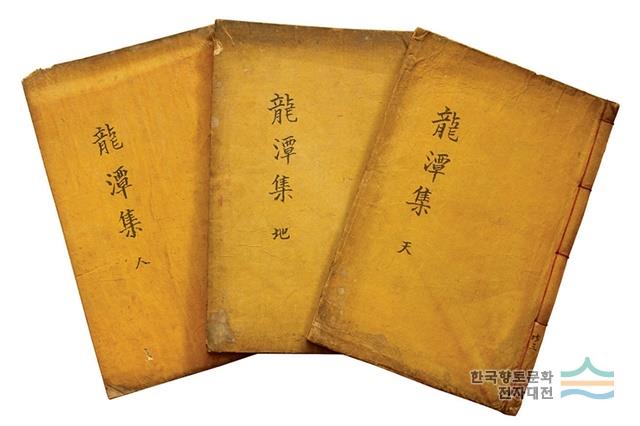 龍潭集
天
龍潭集
地
龍潭集
人
한국향토문화
전자대전